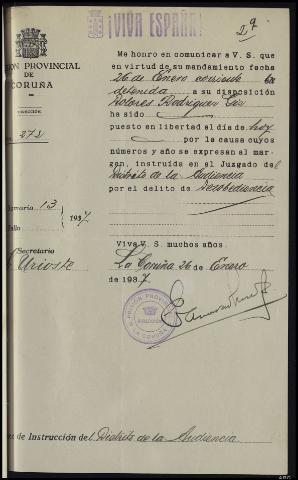 ¡VIVA ESPAÑA!
2ª
SIÓN PROVINCIAL
DE
CORUÑA
DIRECCIÓN
273
Sumario 13
/1937
Fallo
Secretario
Urioste
Me honro en comunicar a V. S. que
en virtud de su mandamiento fecha
26 de Enero corriente
detenida a su disposición
Dolores Rodríguez
ha sido
puesto en libertad el día de hoy
por la causa cuyos
números y año se expresan al mar-
gen, instruída en el Juzgado del
Distrito de la Audiencia
por el delito de Desobediencia
Viva V. S. muchos años.
La Coruña 26 de Enero
de 1937.
PRISIÓN PROVINCIAL
DIRECCIÓN
LA CORUÑA
de Instrucción del Distrito de la Audiencia